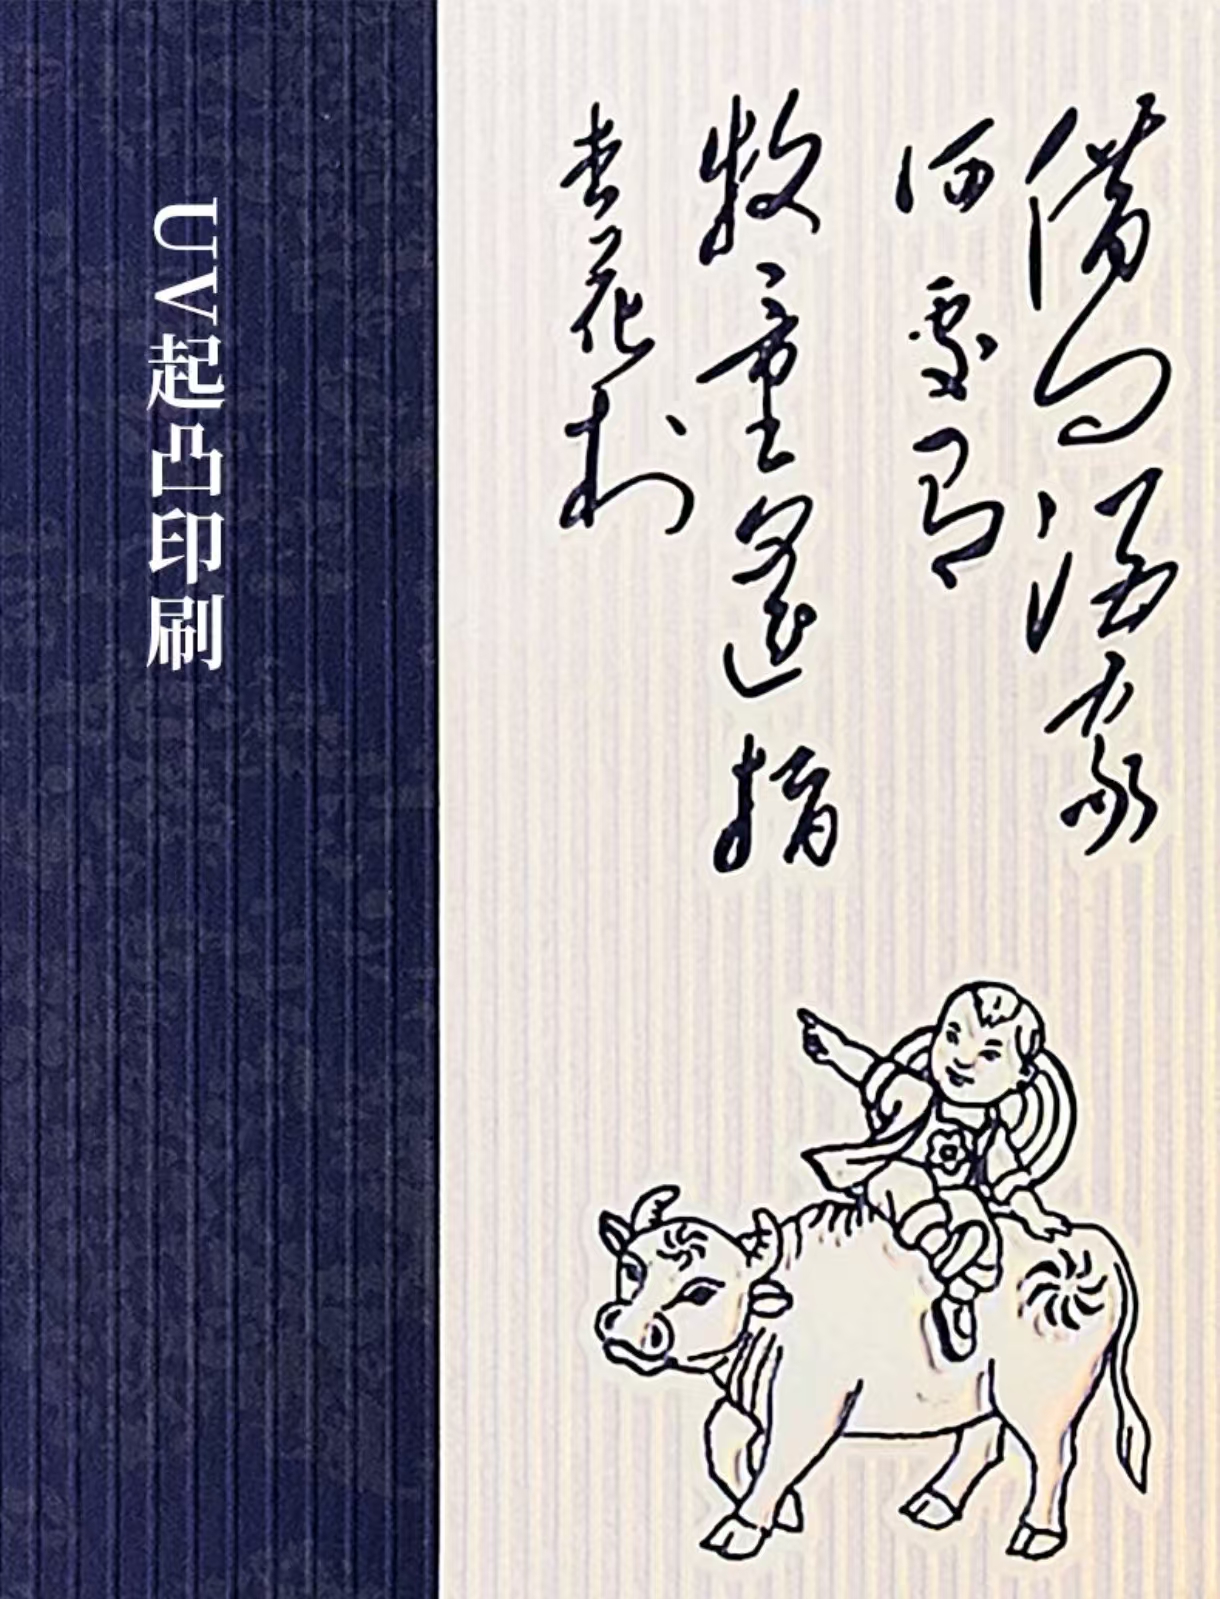 借问酒家
何处有
牧童遥指
杏花村
UV起凸印刷